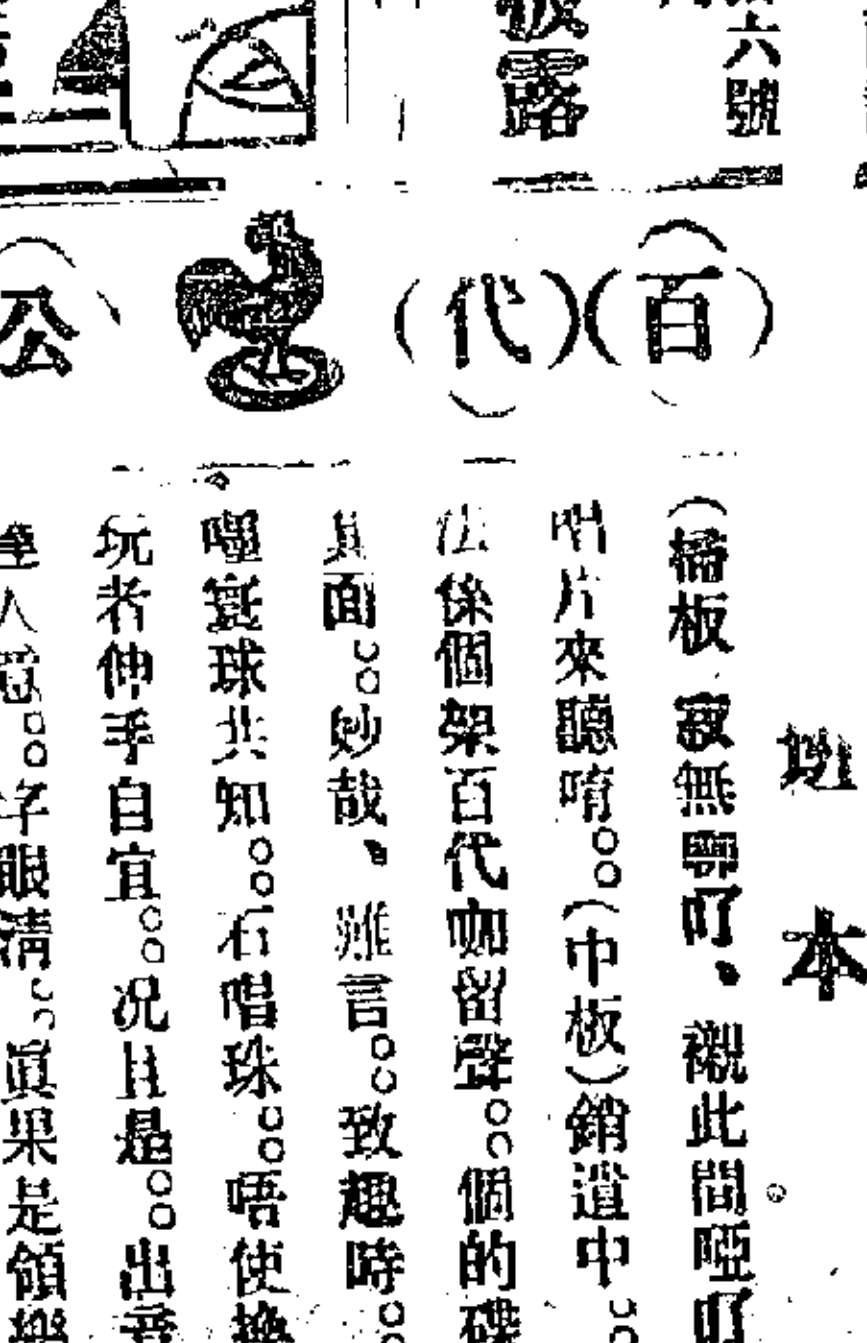 六號
露
百代公
本
(板 寂無聊叮、襯此間啞叮
唱片來聽唷。。(中板)銷遣中。。
法係個架百代咖留聲。。個的碟
具面。。妙哉、雖言。。致趣時。。
嘿寰球共知。。石唱珠。。唔使換
玩者伸手自宜。。况且是。。出音
人意。。字眼清。。眞果是領